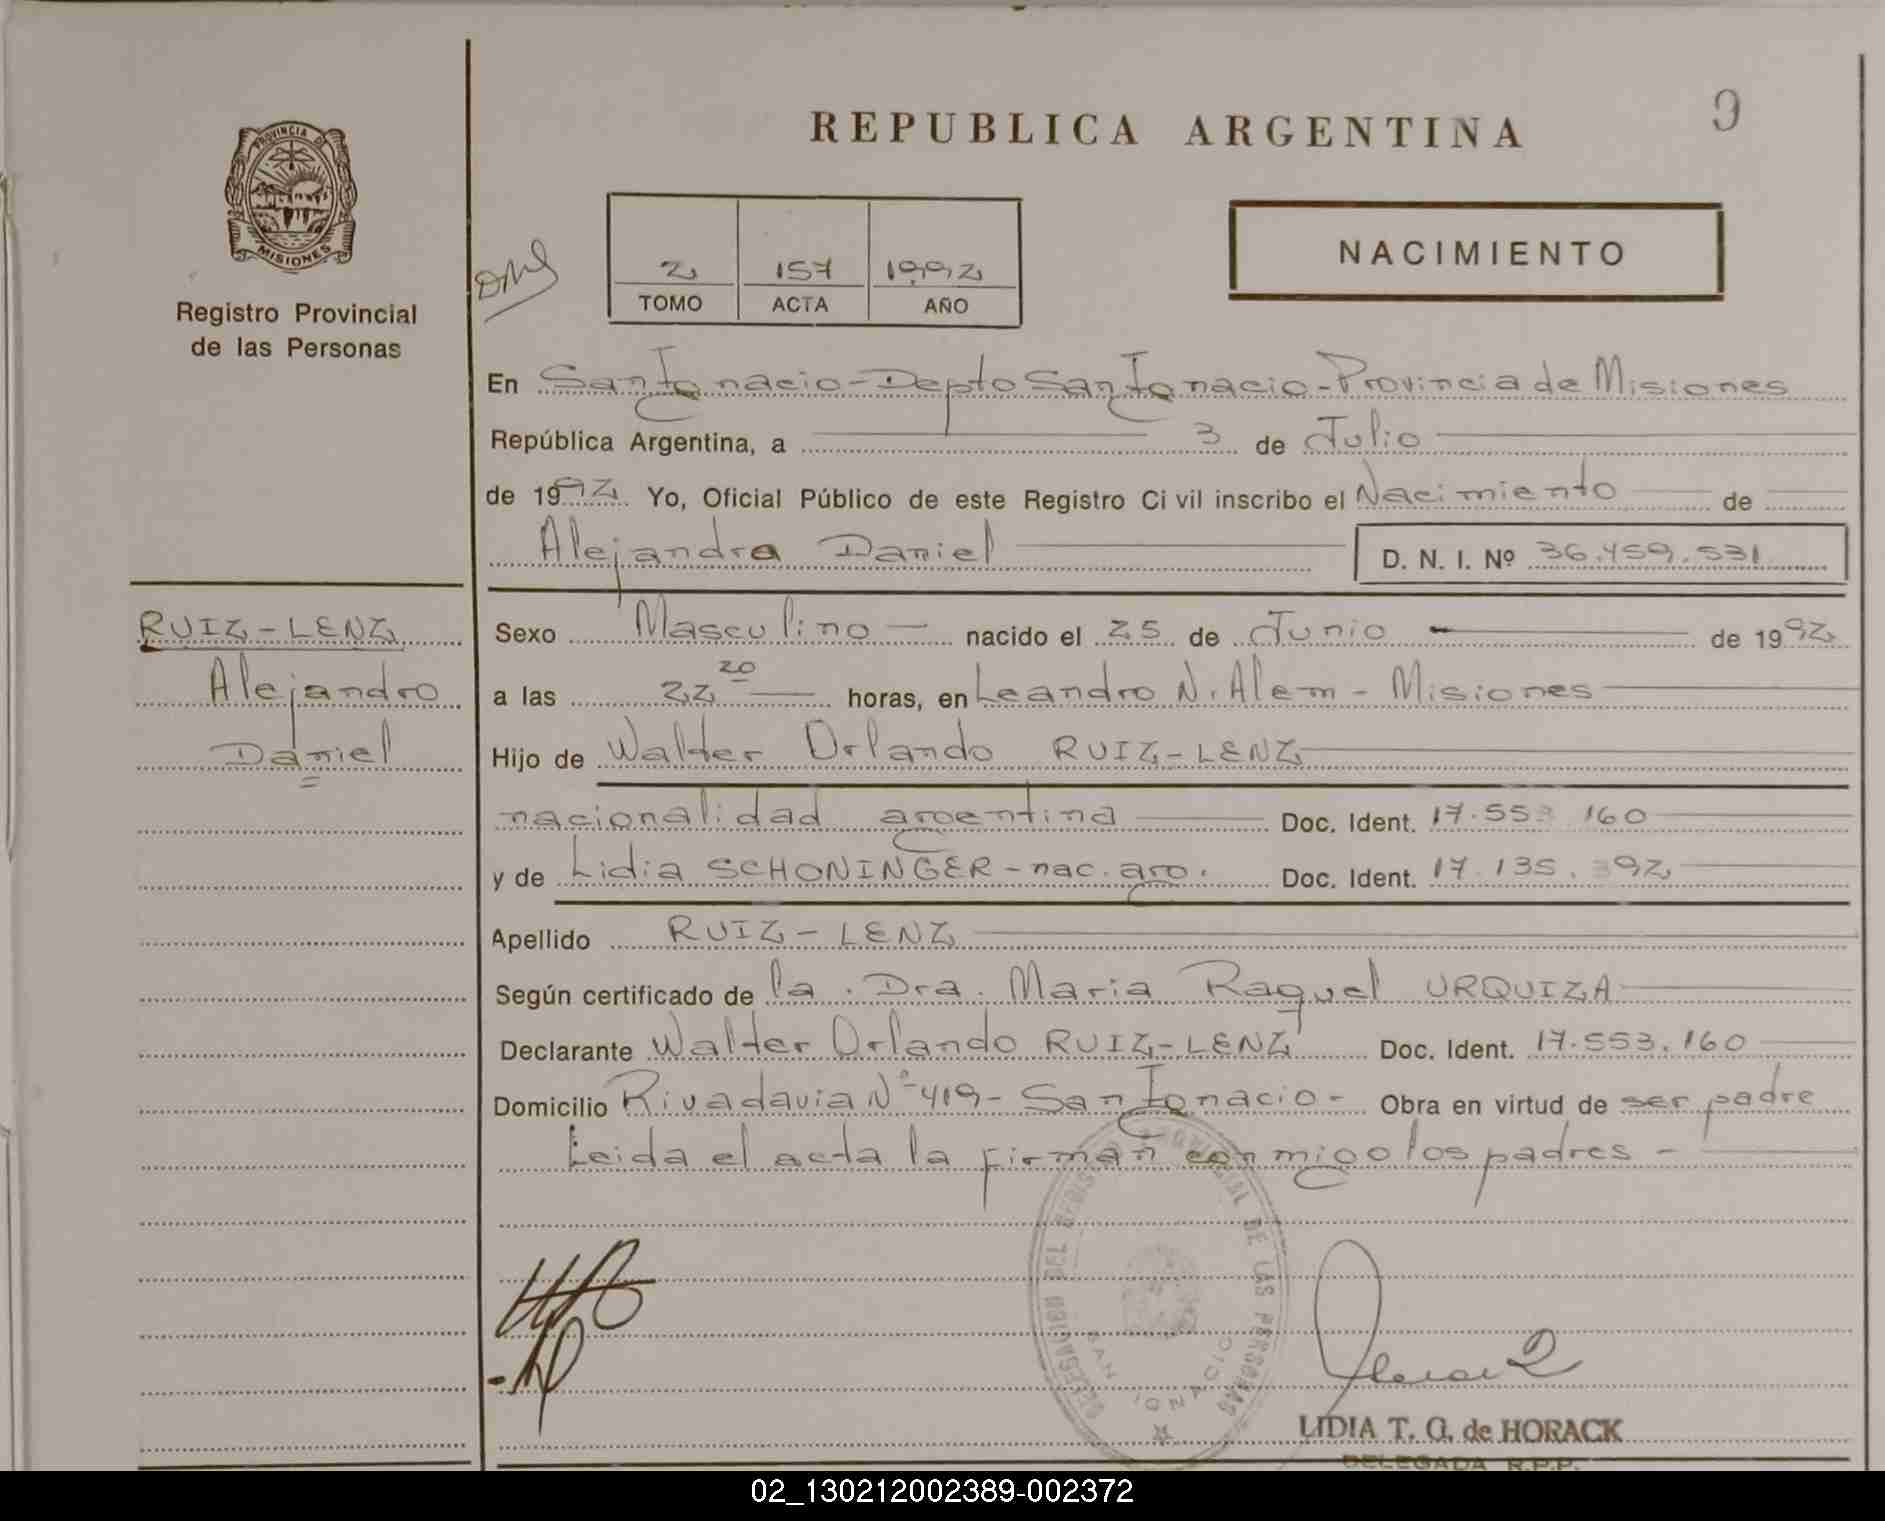 REPUBLICA ARGENTINA
9
PROVINCIA D
MISIONES
Registro Provincial
de las Personas
2 157 1992
TOMO ACTA AÑO
NACIMIENTO
En San Ignacio - Depto San Ignacio - Provincia de Misiones
República Argentina, a 3 de Julio
de 1992 Yo, Oficial Público de este Registro Civil inscribo el Nacimiento de
Alejandro Daniel D. N. I. Nº 36.459.531
RUIZ-LENZ
Alejandro
Daniel
Sexo Masculino - nacido el 25 de Junio de 1992
a las 22 20 horas, en Leandro N. Alem - Misiones
Hijo de Walter Orlando RUIZ-LENZ
nacionalidad argentina Doc. Ident. 17.553 160
y de Lidia SCHONINGER - nac. arg. Doc. Ident. 17.135.392
Apellido RUIZ-LENZ
Según certificado de la Dra. Maria Raquel URQUIZA
Declarante Walter Orlando RUIZ-LENZ Doc. Ident. 17.553.160
Domicilio Rivadavia Nº 419 - San Ignacio - Obra en virtud de ser padre
Leida el acta la firman conmigo los padres -
DELEGACION DEL REGISTRO PROVINCIAL DE LAS PERSONAS
SAN IGNACIO
LIDIA T. G. de HORACK
DELEGADA R.P.P.
02_130212002389-002372